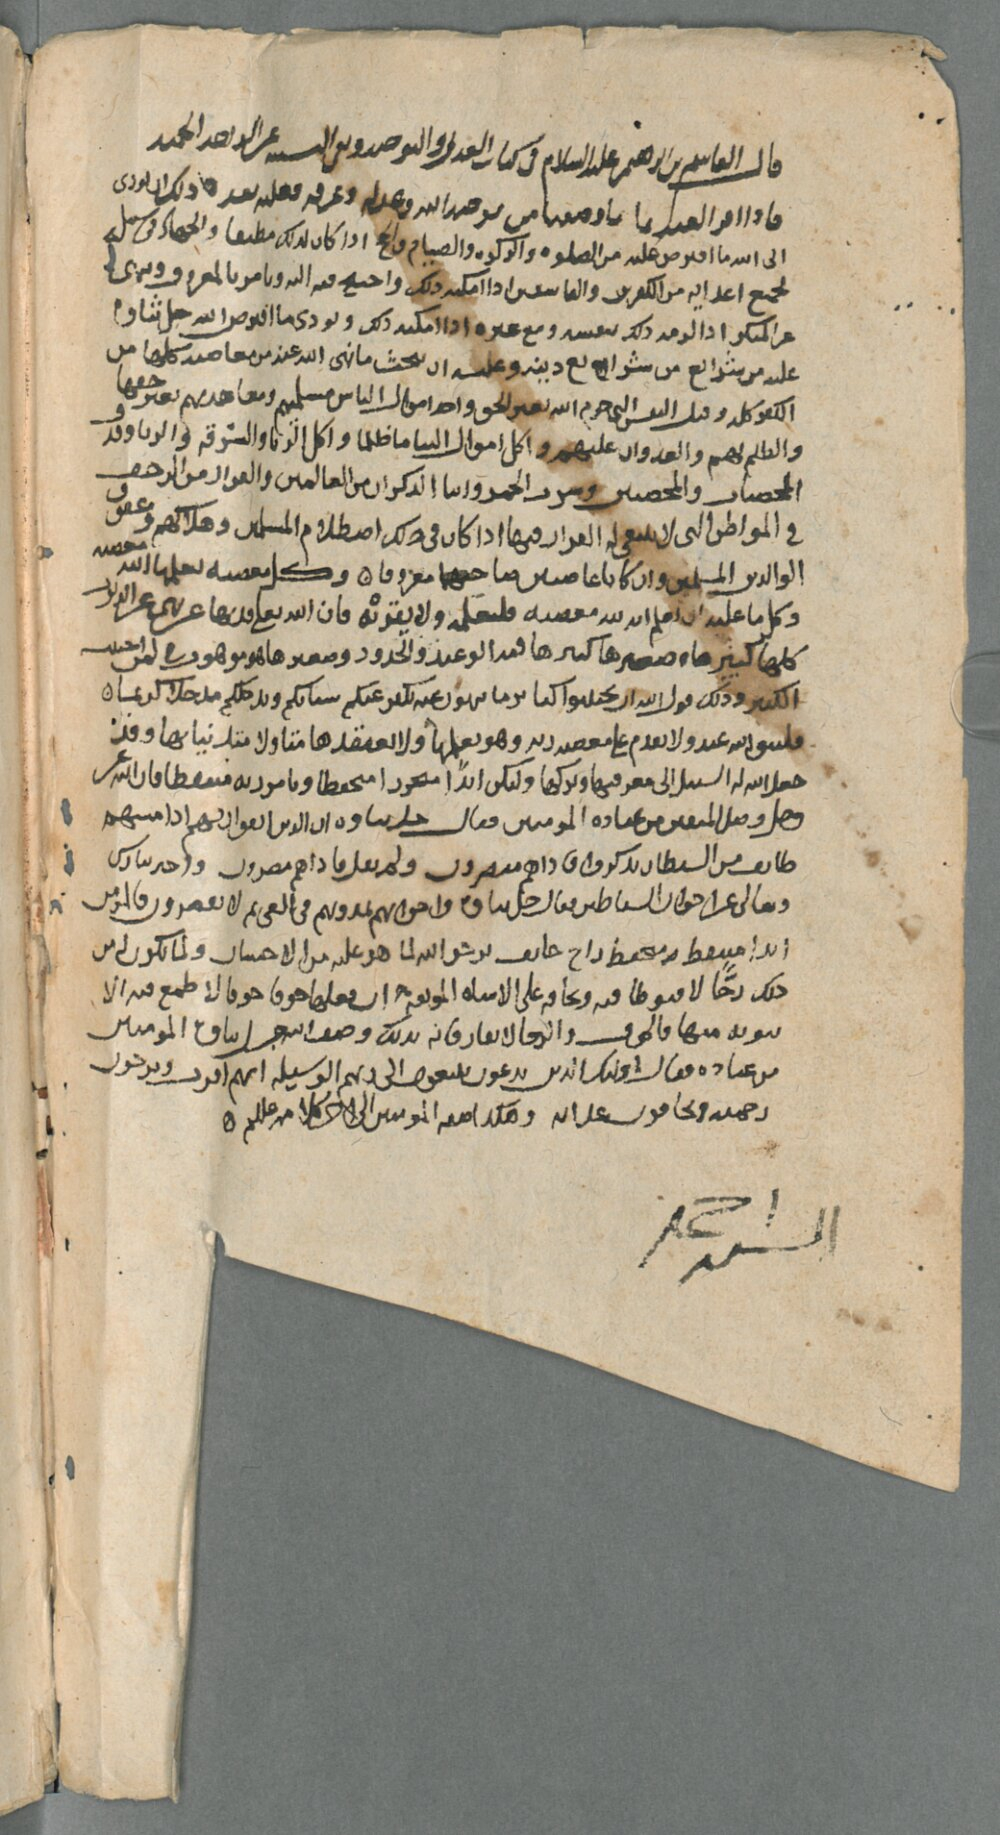 قال القاسم بن ابرهيم عليه السلام في كتاب العدل والتوحيد ونفي التشبيه عن الله الواحد الحميد
فاذا اقر العبد بما وصفنا من توحيد الله وعدله وعرفه فعليه بعد ذلك ان يودي
الى الله ما افترض عليه من الصلوه والزكوه والصيام والحج اذا كان لذلك مطيقا والجهاد في سبيل الله
لجميع اعدايه من الكفرين والفاسقين اذا امكنه ذلك واحتيج فيه اليه ويامر بالمعروف وينهى
عن المنكر اذا لزمه ذلك بنفسه ومع غيره اذا امكنه ذلك ويودي ما افترض الله جل ثناوه
عليه من شرائع من شرائع دينه وعليه ان يجتنب ما نهى الله عنه من معاصيه كلها من
الكفر كله وقتل النفس التي حرم الله بغير الحق واخذ اموال الناس مسلميهم ومعاهديهم بغير حقها
والظلم لهم والعدوان عليهم واكل اموال اليتاما ظلما واكل الربا والسرقه والزنا وقذف
المحصنات والمحصنين وشرب الخمر واتيا الذكران من العالمين والفرار من الزحف
في المواطن التي لا ينبغي له الفرار فيها اذا كان في ذلك اصطلام المسلمين وهلاكهم وعقوق
الوالدين المسلمين وان كانا عاصيين صاحبهما معروفا وكل معصيه يعلمها الله معصيه
وكل ما عليه ان يعلم انه لله معصيه فليعلمه ولا يقربنه فان الله تعالى قد نهى عن المعاصي
كلها كبيرها وصغيرها كبيرها فيه الوعيد والحدود وصغيرها هو موهوب لمن اجتنب
الكبير وذلك قول الله ان تجتنبوا كبائر ما تنهون عنه نكفر عنكم سياتكم وندخلكم مدخلا كريما
فليتق الله عبد ولا يقدم على معصيه ربه وهو يعلمها ولا يعتقدها متاولا متدينا بها وقد
جعل الله له السبيل الى معرفتها وتركها وليكن ابدًا متحرزا متحفظا ومن اموره متيقظا فان الله عز
وجل وصف المتقين من عباده المومنين فقال جل ثناوه ان الذين اتقوا اذا مسهم
طايف من الشيطان تذكروا فاذاهم مبصرون ولم يقل فاذاهم مصرون واخبر تبارك
وتعالى عن اخوان الشياطين فقال جل ثناوه واخوانهم يمدونهم في الغي ثم لا يقصرون فالمومن
ابدا متيقظ متحفظ راج خايف يرجو الله لما هو عليه من الاحسان ولما يكون له من
ذلك رجًا لا قنوط فيه ويخافه على الاساه الموبقه ان فعلها خوفا لا طمع فيه الا
بتوبه منها فالخوف والرجا لا يفارقانه بذلك وصف الله جل ثناوه المومنين
من عباده فقال اولئك الذين يدعون يبتغون الى ربهم الوسيله ايهم اقرب ويرجون
رحمته ويخافون عذابه وهكذا صفه المومنين